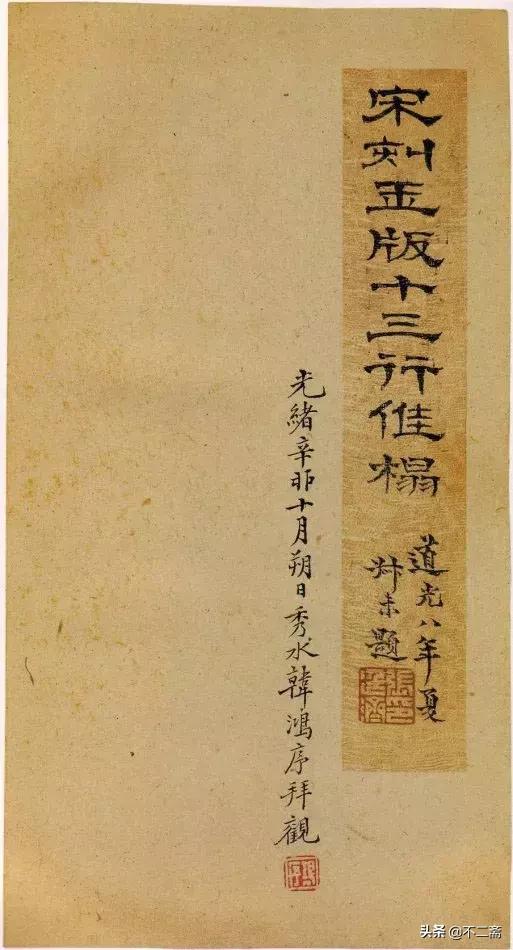 宋刻玉版十三行佳榻
道光八年夏
叔未題
光緒辛卯十月朔日秀水韓鴻序拜觀
头条 @不二斋